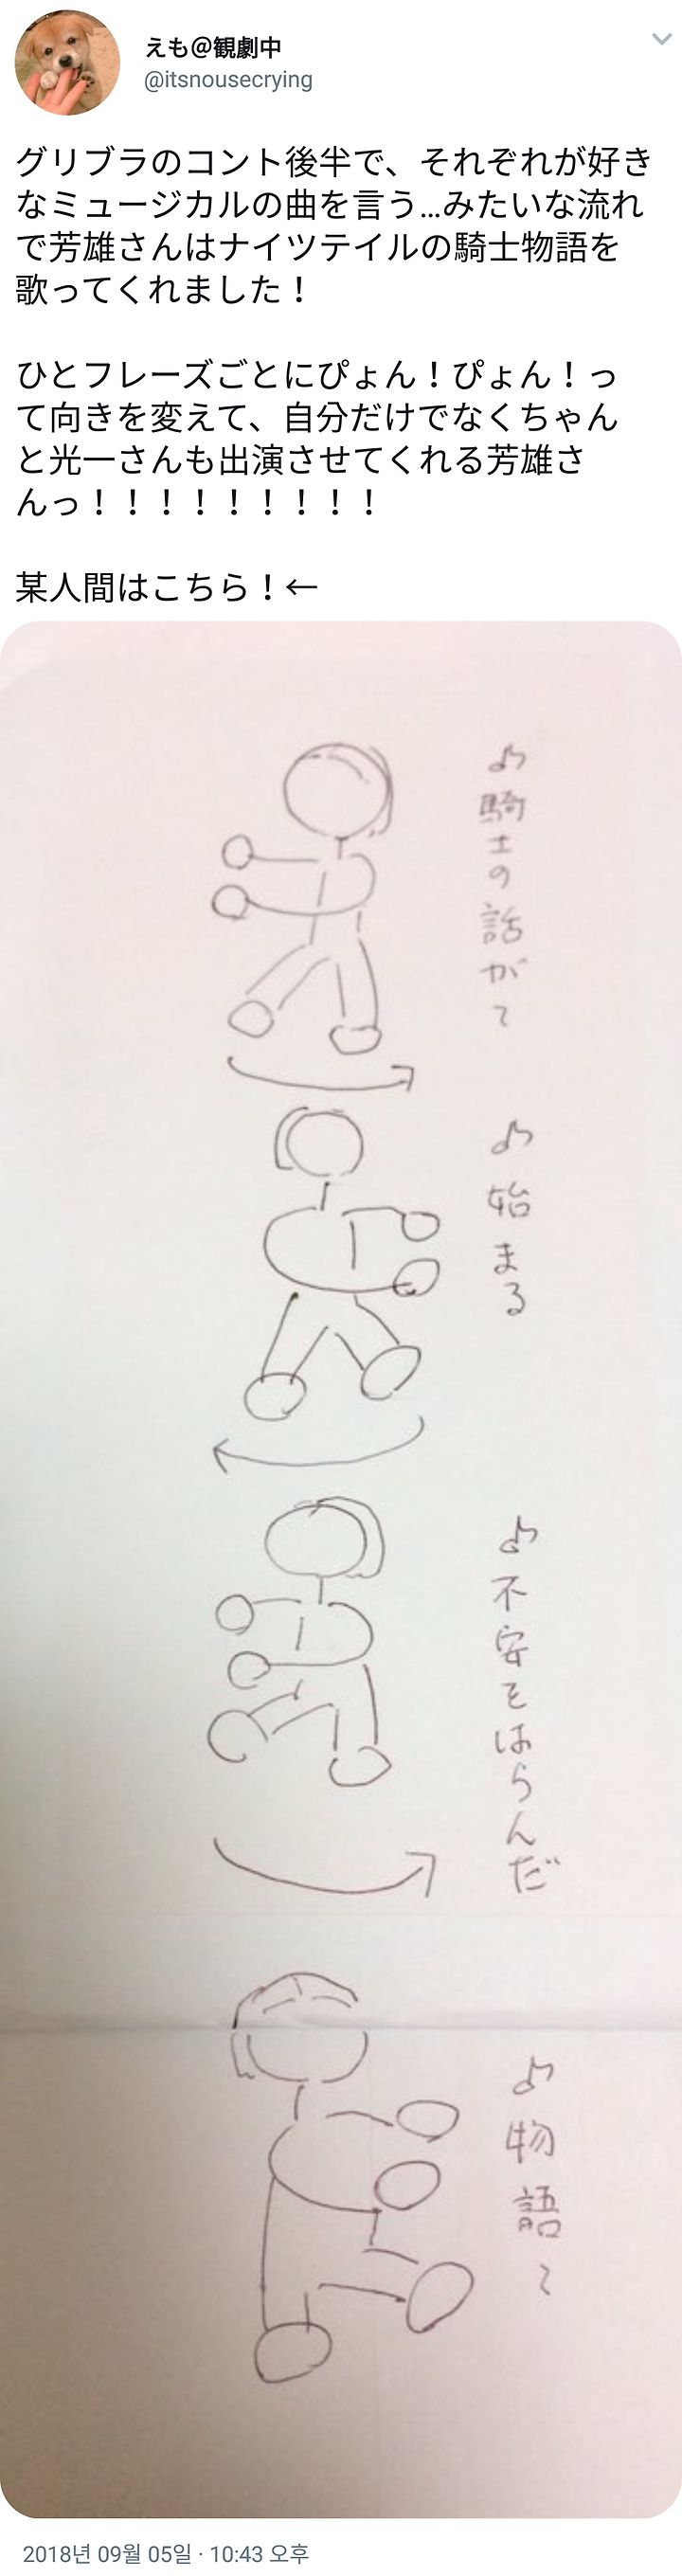 えも@観劇中
@itsnousecrying
グリブラのコント後半で、それぞれが好き
なミュージカルの曲を言う...みたいな流れ
で芳雄さんはナイツテイルの騎士物語を
歌ってくれました！
ひとフレーズごとにぴょん！ぴょん！っ
て向きを変えて、自分だけでなくちゃん
と光一さんも出演させてくれる芳雄さ
んっ！！！！！！！！！
某人間はこちら！←
♪騎士の話が〜
♪始まる
♪不安をはらんだ
♪物語〜
2018년 09월 05일 · 10:43 오후